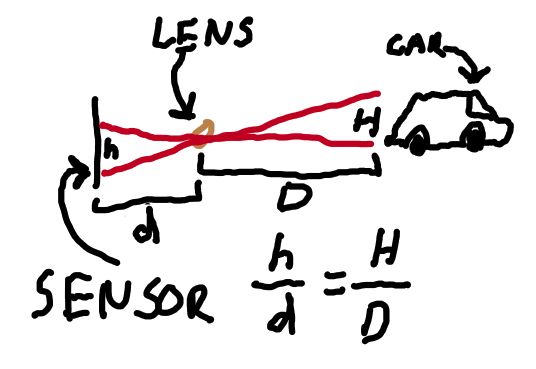 LENS
CAR
h
H
d
D
SENSOR
h/d = H/D